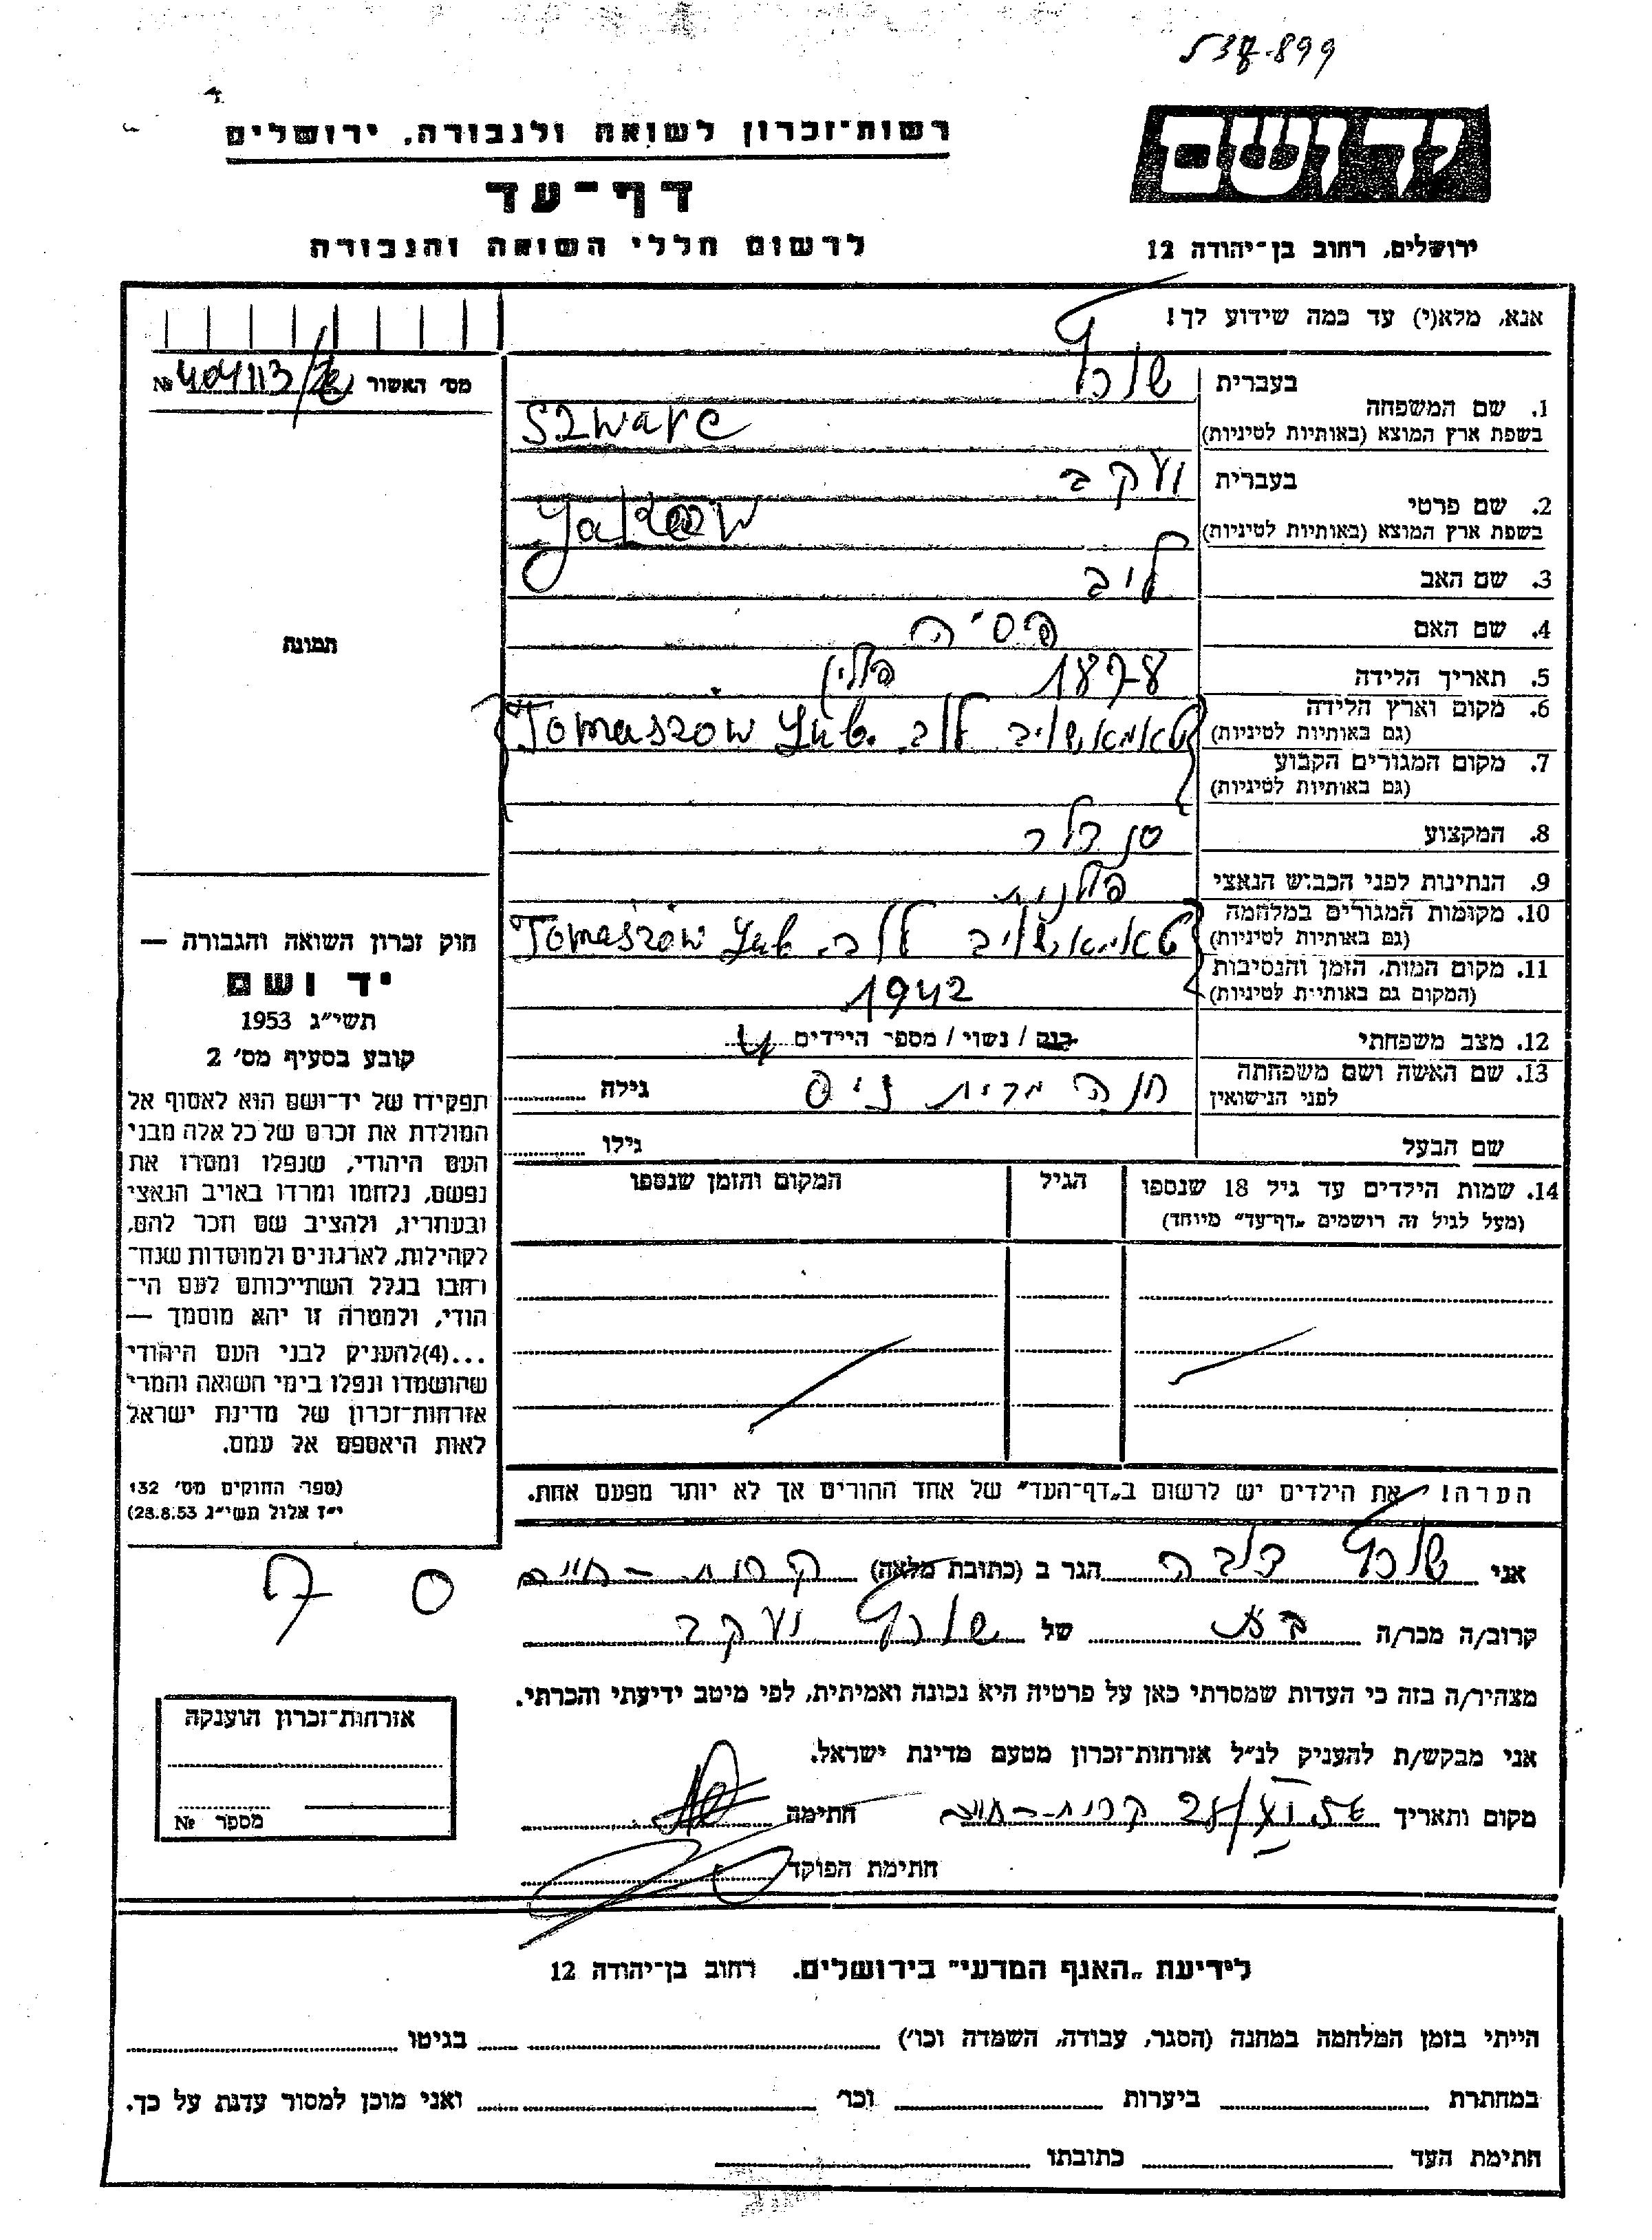 רשות־זכרון לשואה ולגבורה, ירושלים
יד ושם
דף־עד
לרשום חללי השואה והגבורה
ירושלים, רחוב בן־יהודה 12
אנא, מלא(י) עד כמה שידוע לך!
מס' האשור №
1. שם המשפחה
בעברית
שורץ
בשפת ארץ המוצא (באותיות לטיניות)
Szwarc
2. שם פרטי
בעברית
יעקב
בשפת ארץ המוצא (באותיות לטיניות)
3. שם האב
ליב
4. שם האם
פסיה
5. תאריך הלידה
1878 פולין
6. מקום וארץ הלידה
(גם באותיות לטיניות)
טאמאשוב לוב. Tomaszów Lub.
7. מקום המגורים הקבוע
(גם באותיות לטיניות)
8. המקצוע
סנדלר
9. הנתינות לפני הכבוש הנאצי
פולנית
10. מקומות המגורים במלחמה
(גם באותיות לטיניות)
טאמאשוב לוב. Tomaszów Lub.
11. מקום המות, הזמן והנסיבות
(המקום גם באותיות לטיניות)
1942
12. מצב משפחתי
רווק / נשוי / מספר הילדים 4
13. שם האשה ושם משפחתה
לפני הנישואין
חנה גילה
שם הבעל גילו
14. שמות הילדים עד גיל 18 שנספו
(מעל לגיל זה רושמים „דף־עד" מיוחד)
הגיל
המקום והזמן שנספו
הערה! את הילדים יש לרשום ב„דף־העד" של אחד ההורים אך לא יותר מפעם אחת.
תמונה
חוק זכרון השואה והגבורה —
יד ושם
תשי"ג 1953
קובע בסעיף מס' 2
תפקידו של יד־ושם הוא לאסוף אל
המולדת את זכרם של כל אלה מבני
העם היהודי, שנפלו ומסרו את
נפשם, נלחמו ומרדו באויב הנאצי
ובעוזריו, ולהציב שם וזכר להם,
לקהילות, לארגונים ולמוסדות שנח־
רבו בגלל השתייכותם לעם הי־
הודי, ולמטרה זו יהא מוסמך —
...(4) להעניק לבני העם היהודי
שהושמדו ונפלו בימי השואה והמרי
אזרחות־זכרון של מדינת ישראל
לאות היאספם אל עמם.
(ספר החוקים מס' 132
י"ז אלול תשי"ג 28.8.53)
אני שורץ הגר ב (כתובת מלאה) קרית־חיים
קרוב/ה מכר/ה של שורץ יעקב
מצהיר/ה בזה כי העדות שמסרתי כאן על פרטיה היא נכונה ואמיתית, לפי מיטב ידיעתי והכרתי.
אני מבקש/ת להעניק לנ"ל אזרחות־זכרון מטעם מדינת ישראל.
מקום ותאריך קרית־חיים חתימה
חתימת הפוקד
אזרחות־זכרון הוענקה
מספר №
לידיעת „האגף המדעי" בירושלים, רחוב בן־יהודה 12
הייתי בזמן המלחמה במחנה (הסגר, עבודה, השמדה וכו') בגיטו
במחתרת ביערות וכו' ואני מוכן למסור עדות על כך.
חתימת העד כתובתו